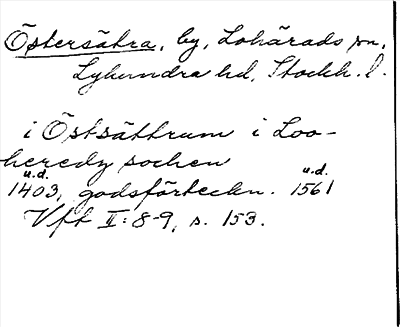 Östersätra, by, Lohärads sn,
Lyhundra hd, Stockh. l.
i Östsättrum i Loo-
heredz sochen
u.d. u.d.
1403, godsförteckn. 1561
Vft II: 8-9, s. 153.